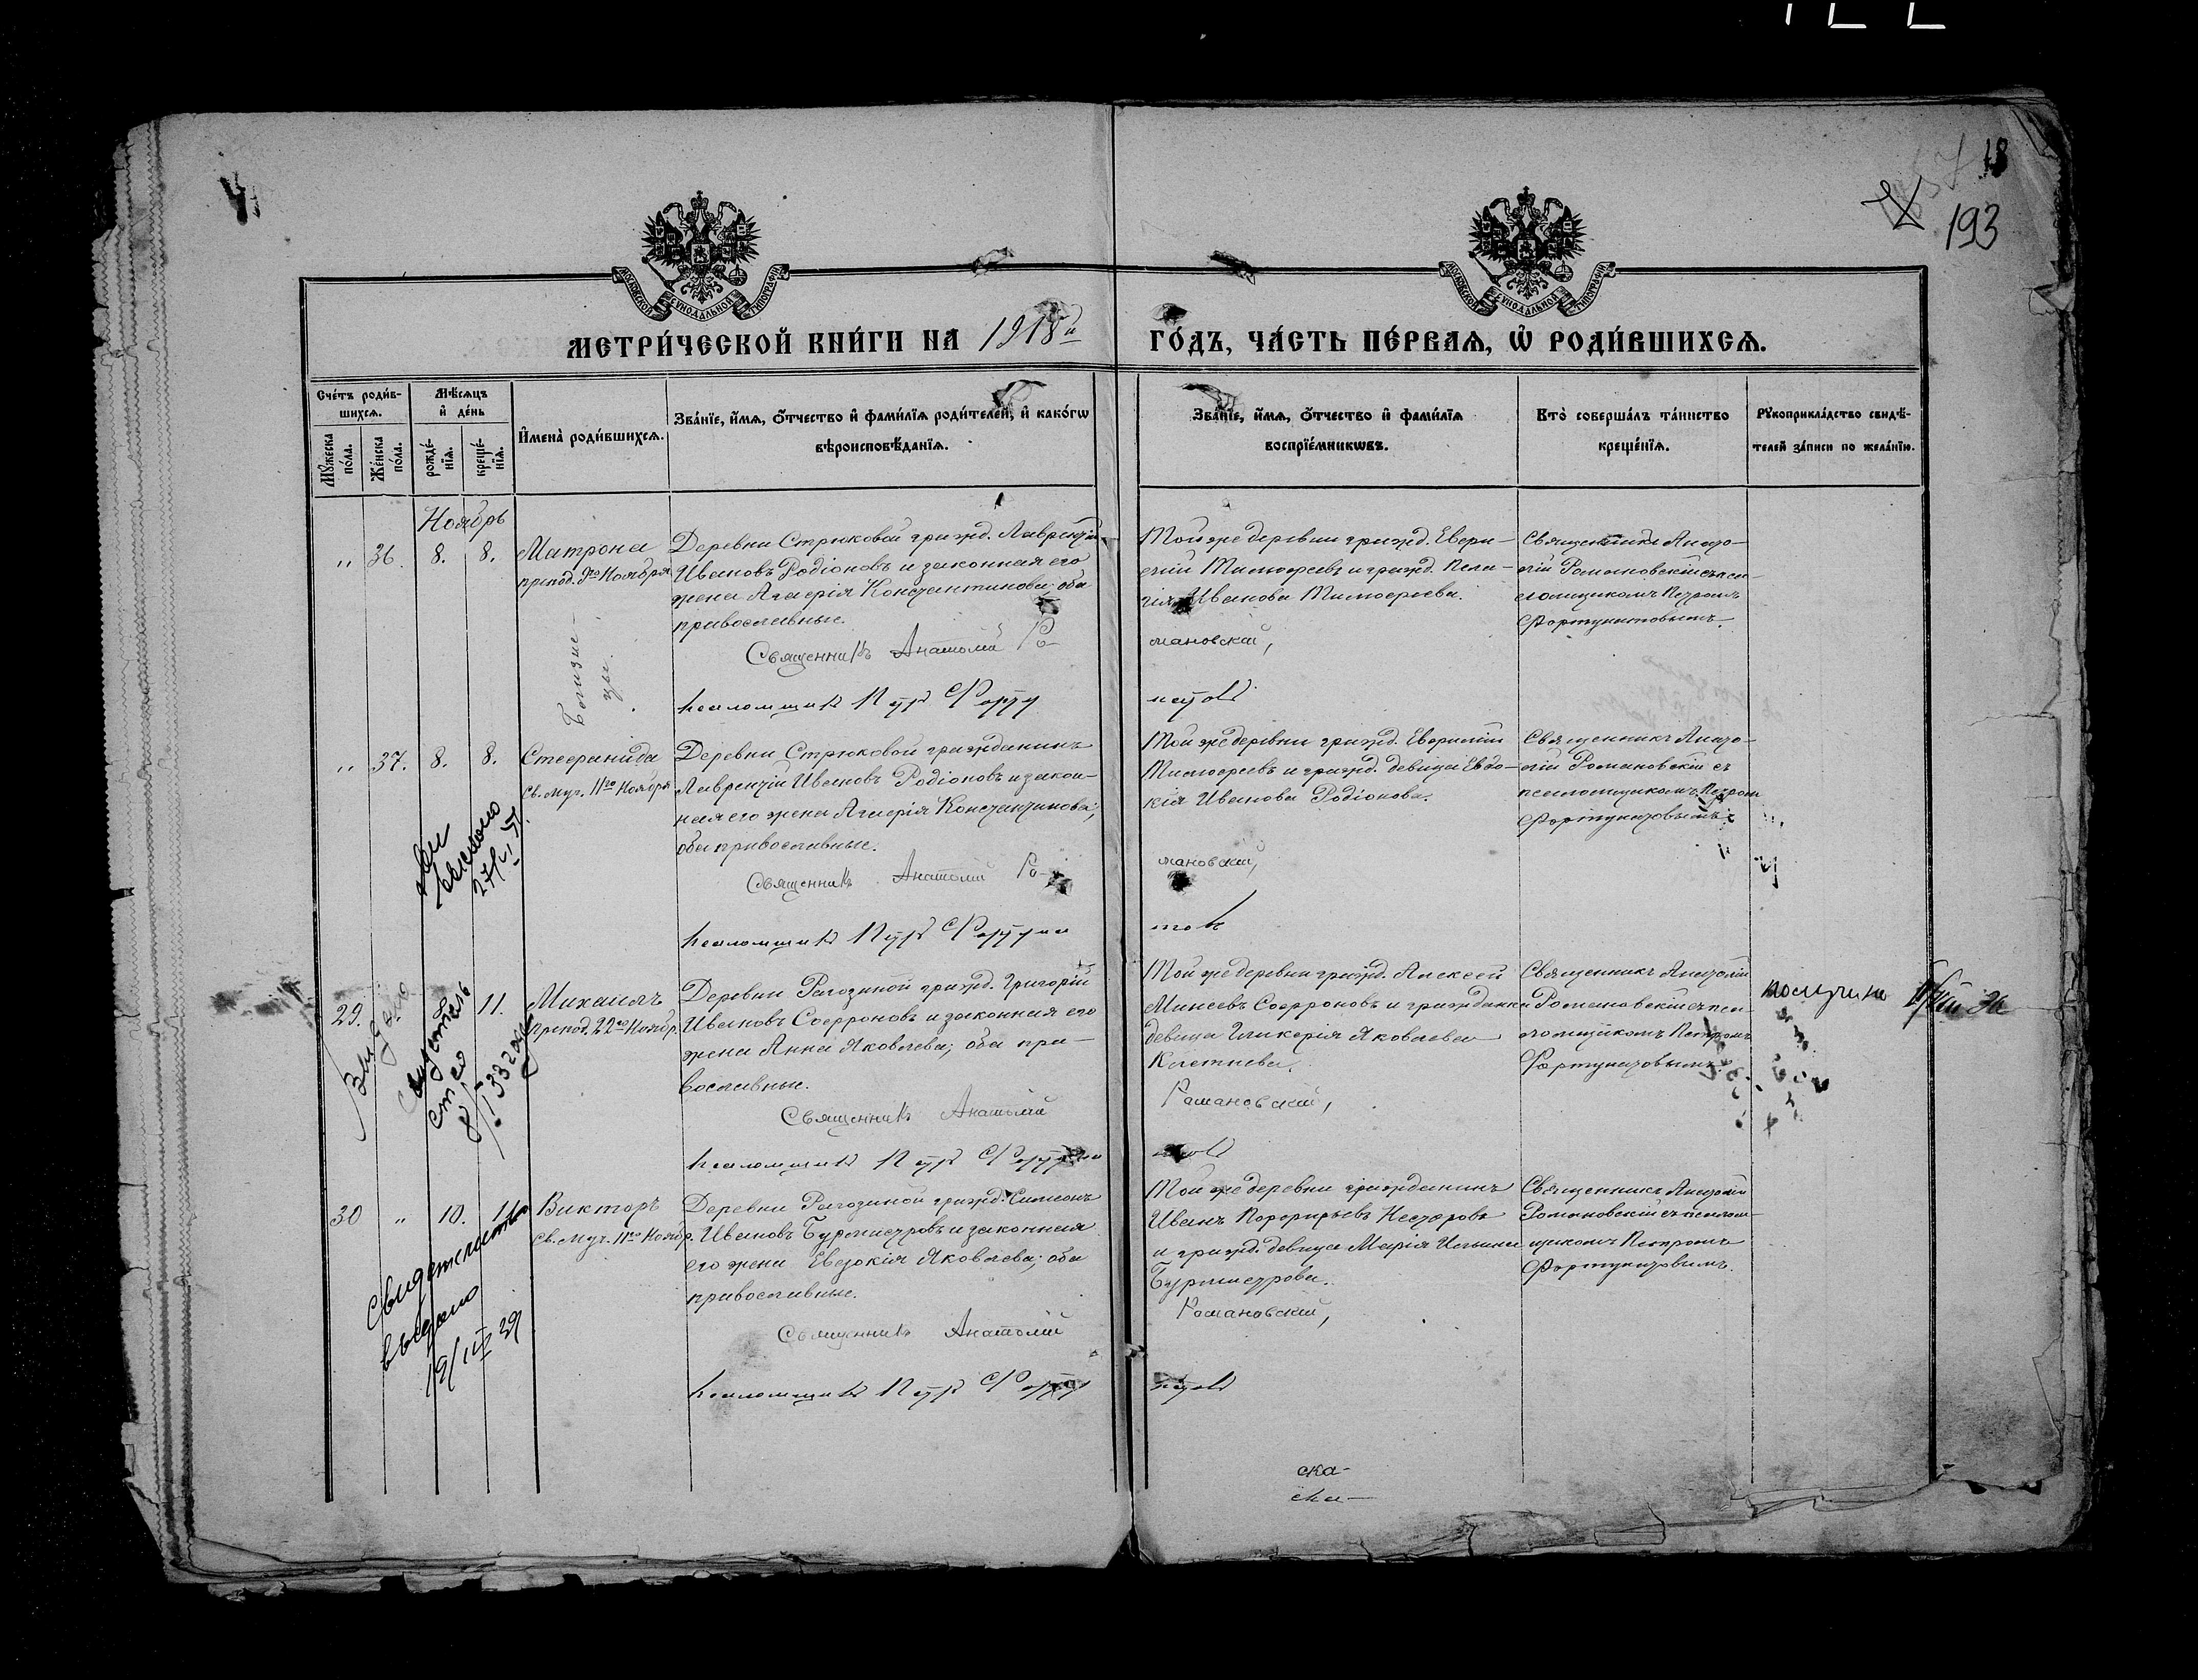 18
193
МОСКОВСКОЙ СѴНОДАЛЬНОЙ ТИПОГРАФІИ
МОСКОВСКОЙ СѴНОДАЛЬНОЙ ТИПОГРАФІИ
МЕТРИ́ЧЕСКОЙ КНИ́ГИ НА 1918й ГО́ДЪ, ЧА́СТЬ ПЕ́РВАѦ, Ѡ҆ РОДИ́ВШИХСѦ.
Сче́тъ роди́в-
шихсѧ.
Мѣ́сѧцъ
и҆ де́нь
Мꙋ́жеска
по́ла.
Же́нска
по́ла.
рожде́-
нїѧ.
креще́-
нїѧ.
И҆мена̀ роди́вшихсѧ.
Зва́нїе, и҆́мѧ, ѻ҆́тчество и҆ фами́лїѧ роди́телей, и҆ како́гѡ
вѣроисповѣ́данїѧ.
Зва́нїе, и҆́мѧ, ѻ҆́тчество и҆ фами́лїѧ
воспрїе́мникѡвъ.
Кто̀ соверша́лъ та́инство
креще́нїѧ.
Рꙋкоприкла́дство свидѣ́-
телей за́писи по жела́нїю.
Ноябрь
" 36. 8. 8.
Матрона
препод. 9го Ноября
Близне-
цы.
Деревни Стрюковой гражд. Лаврентій
Ивановъ Родіоновъ и законная его
жена Агаѳія Константинова; оба
православные.
Священникъ Анатолій Ро-
мановскій,
псаломщикъ Петръ Форту
натовъ
Той же деревни гражд. Евѳи-
мій Тимоѳеевъ и гражд. Пела-
гія Иванова Тимоѳеева.
Священникъ Анато-
лій Романовскій съ пса-
ломщикомъ Петромъ
Фортунатовымъ.
" 37. 8. 8.
Стефанида
Св. муч. 11го Ноября
27/VI
Деревни Стрюковой гражданинъ
Лаврентій Ивановъ Родіоновъ и закон-
ная его жена Агаѳія Константинова;
оба православные.
Священникъ Анатолій Ро-
мановскій,
псаломщикъ Петръ Фортуна
товъ
Той же деревни гражд. Евѳимій
Тимоѳеевъ и гражд. девица Евдо-
кія Иванова Родіонова.
Священникъ Анато-
лій Романовскій съ
псаломщикомъ Петромъ
Фортунатовымъ.
29. " 8. 11.
Михаилъ
Препод. 22го Ноябр.
Выдано
свидетель
ство
8/I 33 года
Деревни Рагозиной гражд. Григорій
Ивановъ Софроновъ и законная его
жена Анна Яковлева; оба пра-
вославные.
Священникъ Анатолій
Романовскій,
псаломщикъ Петръ Фортуна
товъ
Той же деревни гражд. Алексей
Минеевъ Софроновъ и гражданка
девица Гликерія Яковлева
Священникъ Анатолій
Романовскій съ пса-
ломщикомъ Петромъ
Фортунатовымъ.
получила
30 " 10. 11.
Викторъ
Св. Муч. 11го Ноябр.
Свидетельство
выдано
19/III 29
Деревни Рагозиной гражд. Симеонъ
Ивановъ Бурмистровъ и законная
его жена Евдокія Яковлева; оба
православные.
Священникъ Анатолій
Романовскій,
псаломщикъ Петръ Форту
натовъ
Той же деревни гражданинъ
Иванъ Порфирьевъ Несторовъ
и гражд. девица Марія Ильина
Бурмистрова.
Священникъ Анатолій
Романовскій съ псалом-
щикомъ Петромъ
Фортунатовымъ.
ска-
ска-